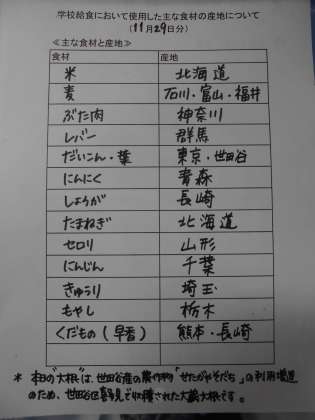 学校給食において使用した主な食材の産地について
(11月29日分)
≪主な食材と産地≫
食材 産地
米 北海道
麦 石川・富山・福井
ぶた肉 神奈川
レバー 群馬
だいこん・葉 東京・世田谷
にんにく 青森
しょうが 長崎
たまねぎ 北海道
セロリ 山形
にんじん 千葉
きゅうり 埼玉
もやし 栃木
くだもの(早香) 熊本・長崎
* 本日の"大根"は、世田谷産の農作物「せたがやそだち」の利用増進
のため、世田谷区で収穫された大蔵大根です。